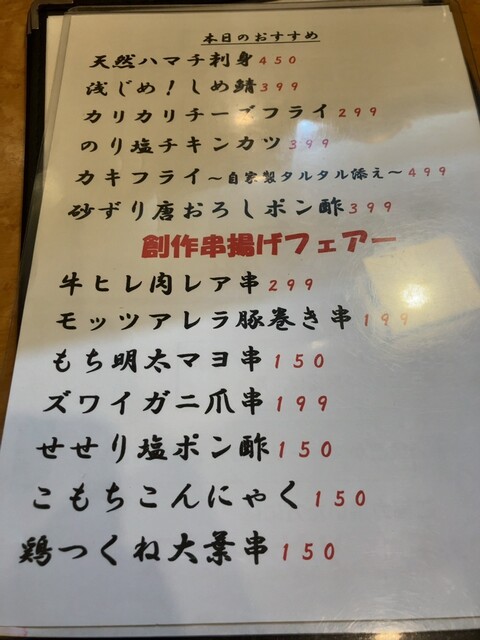 本日のおすすめ
天然ハマチ刺身450
浅じめ!しめ鯖399
カリカリチーズフライ299
のり塩チキンカツ399
カキフライ~自家製タルタル添え~499
砂ずり唐おろしポン酢399
創作串揚げフェアー
牛ヒレ肉レア串299
モッツアレラ豚巻き串199
もち明太マヨ串150
ズワイガニ爪串199
せせり塩ポン酢150
こもちこんにゃく150
鶏つくね大葉串150